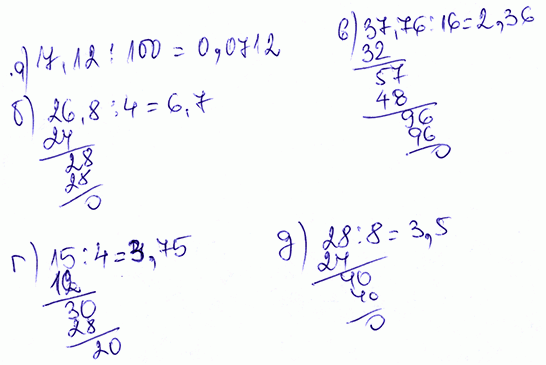 а) 17,12 : 100 = 0,0712
б) 26,8 : 4 = 6,7
24
28
28
0
в) 37,76 : 16 = 2,36
32
57
48
96
96
0
г) 15 : 4 = 3,75
12
30
28
20
д) 28 : 8 = 3,5
24
40
40
0